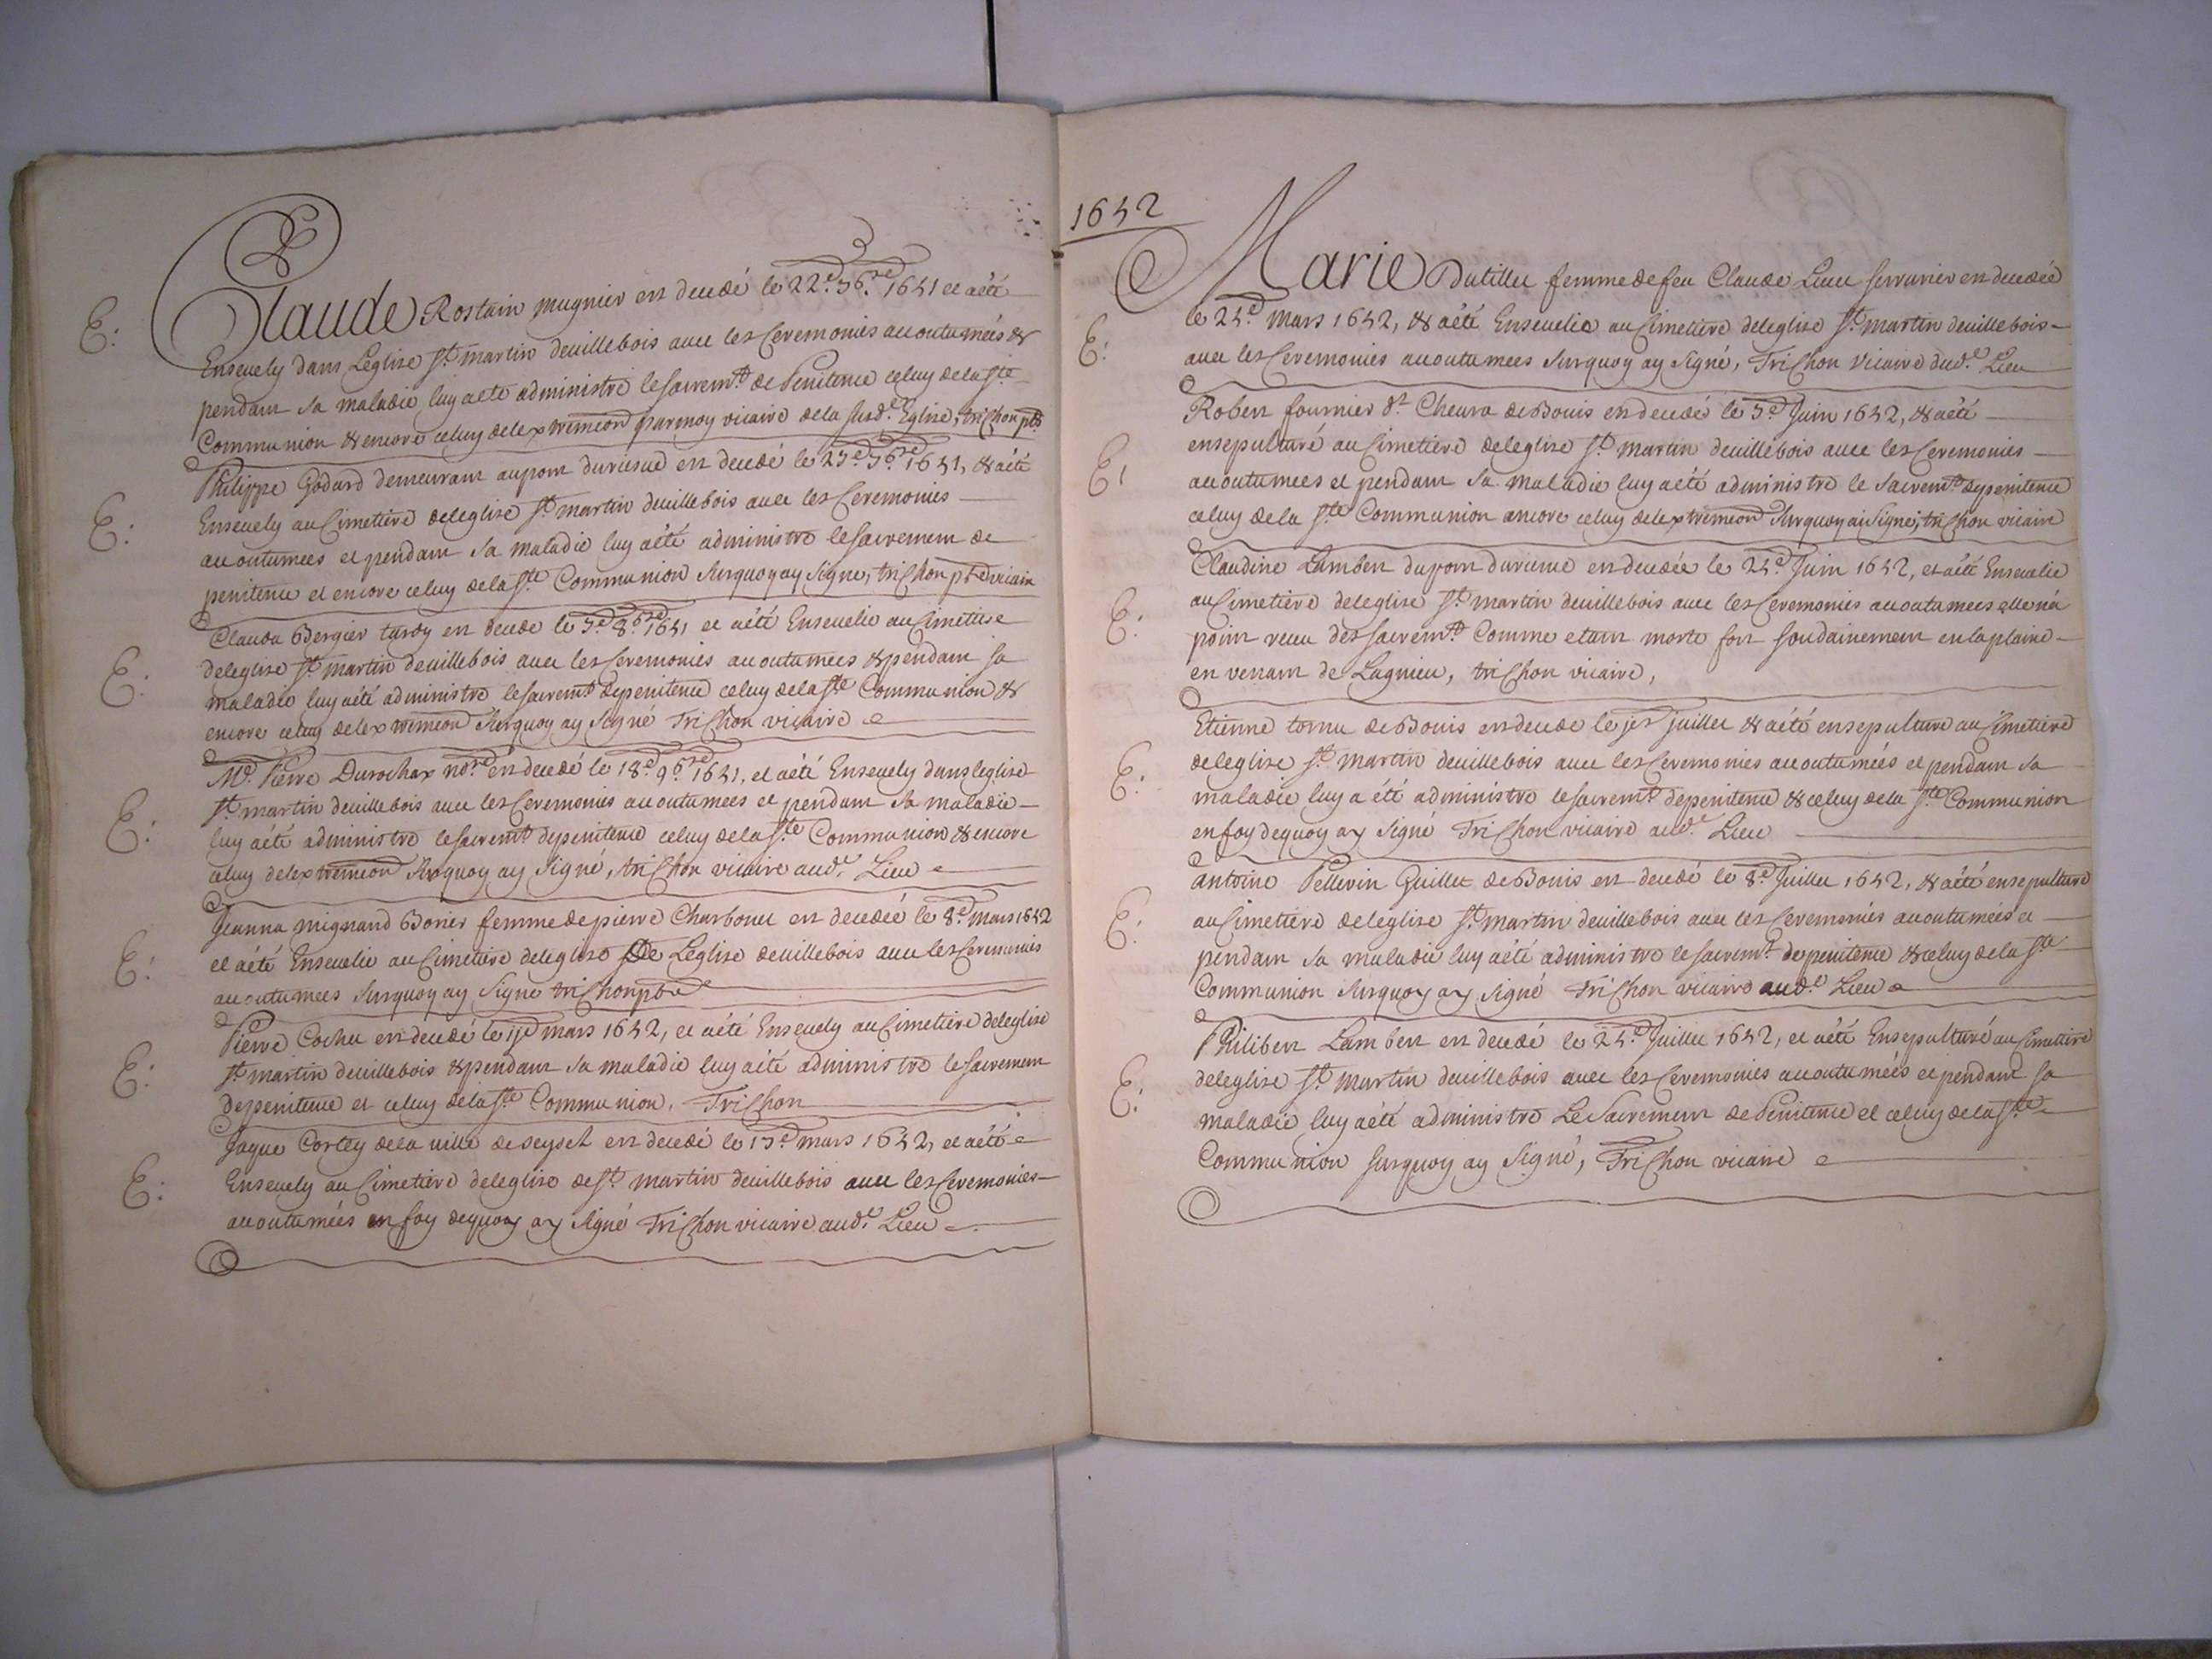 E:
Claude Rostain mugnier est decedé le 22e. 7bre. 1641 et a été
Ensevely dans Leglise St. martin devillebois avec les Ceremonies accoutumées &
pendant sa maladie luy a eté administré le sacremt. de Penitence celuy dela Ste
Communion & encore celuy delextremeon par moy vicaire dela susd.e Eglise, trichon ptre
E:
Philippe Godard demeurant au pont durieme est decedé le 27e. 7bre. 1641, & a été
Ensevely au Cimetiere deleglise St. martin devillebois avec les Ceremonies
accoutumees et pendant sa maladie luy a été administre le sacrement de
penitence et encore celuy dela Ste. Communion Surquoy ay Signe, trichon ptre vicaire
E:
Clauda Bergier tardy est decede le 3e. 8bre 1641 et a été Ensevelie au Cimetiere
deleglise St. martin devillebois avec les Ceremonies accoutumees & pendant sa
maladie luy a été administre le sacremt. depenitence celuy dela Ste Communion &
encore celuy delextremeon Surquoy ay Signé Trichon vicaire
E:
Me. Pierre Durochax nore est decedé le 18e. 9bre. 1641, et a été Ensevely dans leglise
St. martin devillebois avec les Ceremonies accoutumees et pendant sa maladie
luy a été administre le sacremt. depenitence celuy dela Ste Communion & encore
celuy delextremeon Surquoy ay Signé, trichon vicaire aud.e Lieu
E:
Jeanna mignand Borier femme de pierre Charbonet est decedée le 8e. mars 1642
et a été Ensevelie au Cimetiere deleglise De Leglise devillebois avec les Ceremonies
accoutumees Surquoy ay Signe trichon ptre
E:
Pierre Cochet est decedé le jje mars 1642, et a été Ensevely au Cimetiere deleglise
St. martin devillebois & pendant sa maladie luy a été administre le sacrement
depenitence et celuy dela Ste Communion. Trichon
E:
Jaque Cortey dela ville de seyset est decedé le 13e. mars 1642, et a été
Ensevely au Cimetiere deleglise de St. martin devillebois avec les Ceremonies
accoutumées en foy dequoy ay Signé Trichon vicaire aud.e Lieu
1642
E:
Marie Dutillet femme de feu Claude Lieu serrurier est decedée
le 24e. mars 1642, & a été Ensevelie au Cimetiere deleglise St. martin devillebois
avec les Ceremonies accoutumees Surquoy ay Signé, Trichon vicaire dud.e Lieu
E:
Robert fournier dt. Cheura de Bouis est decedé le 3e. Juin 1642, & a été
ensepulturé au Cimetiere deleglise St. martin devillebois avec les Ceremonies
accoutumees et pendant sa maladie luy a été administre le sacremt. depenitence
celuy dela Ste Communion ancore celuy delextremeon Surquoy ai Signe, trichon vicaire
E:
Claudine Lambert du pont durieme est decedée le 24e. Juin 1642, et a été Ensevelie
au Cimetiere deleglise St. martin devillebois avec les Ceremonies accoutumees elle n'a
point receu des sacremts. Comme etant morte fort soudainement en la plaine
en venant de Lagnieu, trichon vicaire,
E:
Etienne tornu de Bouis est decede le jer juillet & a été ensepulture au Cimetiere
deleglise St. martin devillebois avec les Ceremonies accoutumées et pendant sa
maladie luy a été administre le sacremt. depenitence & celuy dela Ste Communion
en foy dequoy ay Signé Trichon vicaire aud.e Lieu
E:
antoine Pellerin Guillet de Bouis est decedé le 8e. Juillet 1642, & a été ensepulture
au Cimetiere deleglise St. martin devillebois avec les Ceremonies accoutumées et
pendant sa maladie luy a été administre le sacremt. de penitence & celuy dela Ste
Communion Surquoy ay Signé Trichon vicaire aud.e Lieu
E:
Philibert Lambert est decedé le 24e. Juillet 1642, et a été Ensepulturé au Cimetiere
deleglise St. Martin devillebois avec les Ceremonies accoutumées et pendant sa
maladie luy a été administre Le Sacrement de Penitence et celuy dela Ste
Communion surquoy ay Signé, Trichon vicaire